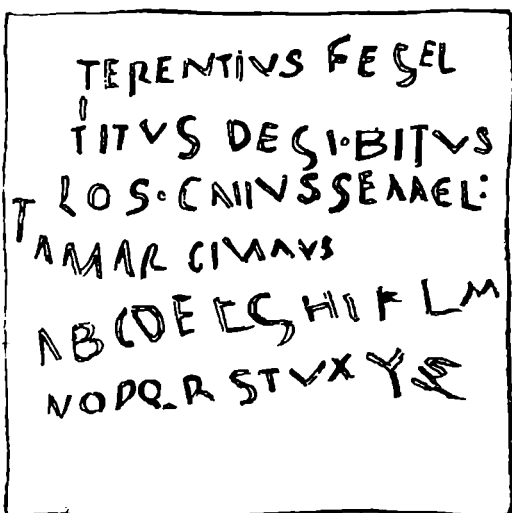 TERENTIVS FEGEL
TITVS DEGI·BITVS
LOS·CAIIVSSEMAEL:
TAMARCIMAVS
ABCDEFGHIKLM
NOPQRSTVXYZ